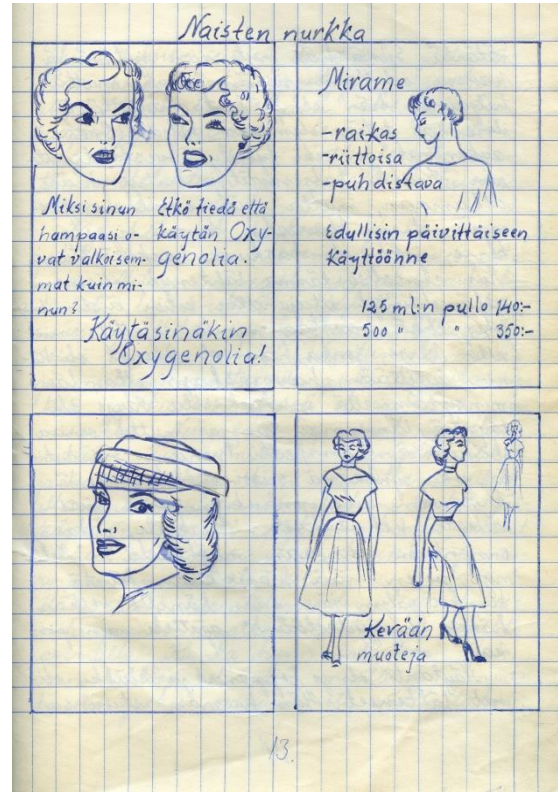 Naisten nurkka
Miksi sinun
hampaasi o-
vat valkoisem-
mat kuin mi-
nun?
Etkö tiedä että
käytän Oxy-
genolia.
Käytä sinäkin
Oxygenolia!
Mirame
-raikas
-riittoisa
-puhdistava
Edullisin päivittäiseen
Käyttöönne
125 ml:n pullo 140:-
500 " " 350:-
Kevään
muoteja
13.